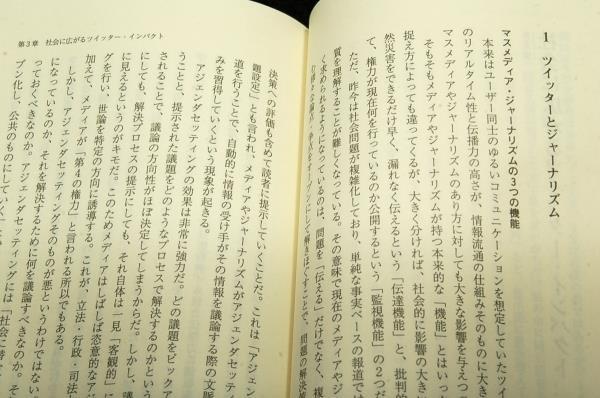 1 ツイッターとジャーナリズム
マスメディア・ジャーナリズムの3つの機能
本来はユーザー同士のゆるいコミュニケーションを想定していたツイ
のリアルタイム性と伝播力の高さが、情報流通の仕組みそのものに大き
マスメディアやジャーナリズムのあり方に対しても大きな影響を与えつ
そもそもメディアやジャーナリズムが持つ本来的な「機能」とはいった
捉え方によっても違ってくるが、大きく分ければ、社会的に影響の大き
然災害をできるだけ早く、漏れなく伝えるという「伝達機能」と、批判的
て、権力が現在何を行っているのか公開するという「監視機能」の2つだ
ただ、昨今は社会問題が複雑化しており、単純な事実ベースの報道では
質を理解することが難しくなっている。その意味で現在のメディアやジ
く求められるようになっているのは、問題を「伝える」だけでなく、複
にして解きほぐすことで、問題の解決
第3章 社会に広がるツイッター・インパクト
決策への評価も含めて読者に提示していくことだ。これは「アジェン
題設定）」とも言われ、メディアやジャーナリズムがアジェンダセッティ
道を行うことで、自動的に情報の受け手がその情報を議論する際の文脈
みを習得していくという現象が起きる。
アジェンダセッティングの効果は非常に強力だ。どの議題をピックア
うことと、提示された議題をどのようなプロセスで解決するのかという
されることで、議論の方向性がほぼ決定してしまうからだ。しかし、議
にしても、解決プロセスの提示にしても、それ自体は一見「客観的」に
に見えるというのがキモだ。このためメディアはしばしば恣意的なアジ
行い、世論を特定の方向に誘導する。これが、立法・行政・司法
加えて、メディアが「第4の権力」と言われる所以でもある。
しかし、アジェンダセッティングそのものが悪というわけではない
になっているのか、それを解決するために何を議論すべきなのか。
っておくべきなのか。アジェンダセッティングには「社会に潜
ブン化し、公共のものにしていく